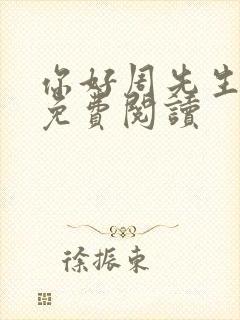 你好周先生
免費閱讀
徐振東